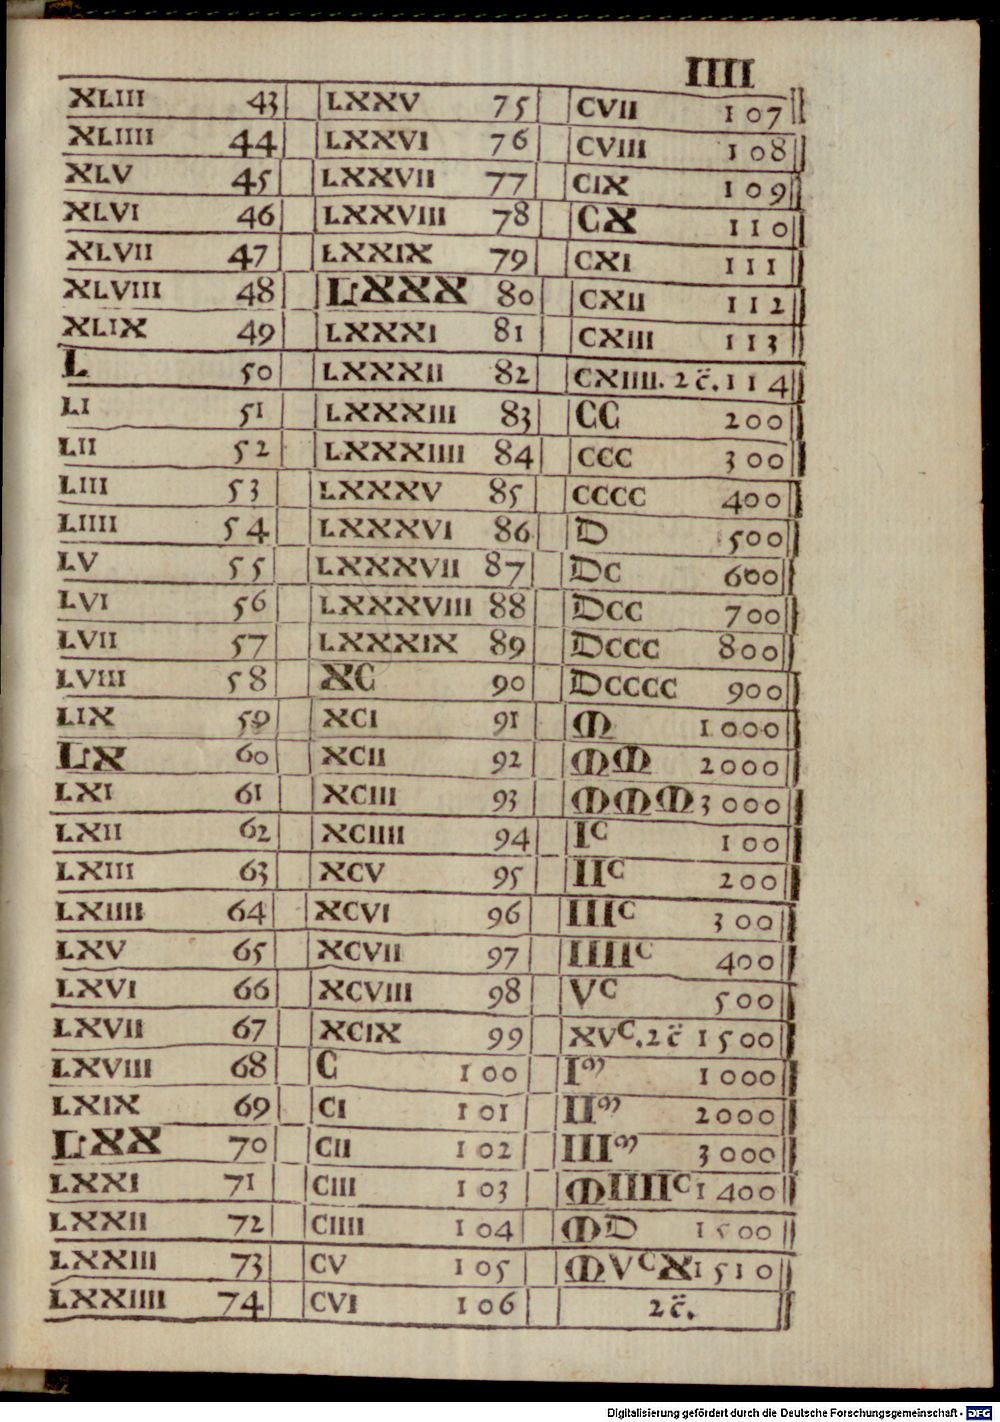 IIII
XLIII 43 LXXV 75 CVII 107
XLIIII 44 LXXVI 76 CVIII 108
XLV 45 LXXVII 77 CIX 109
XLVI 46 LXXVIII 78 CX 110
XLVII 47 LXXIX 79 CXI 111
XLVIII 48 LXXX 80 CXII 112
XLIX 49 LXXXI 81 CXIII 113
L 50 LXXXII 82 CXIIII. 2c̈. 114
LI 51 LXXXIII 83 CC 200
LII 52 LXXXIIII 84 CCC 300
LIII 53 LXXXV 85 CCCC 400
LIIII 54 LXXXVI 86 D 500
LV 55 LXXXVII 87 DC 600
LVI 56 LXXXVIII 88 DCC 700
LVII 57 LXXXIX 89 DCCC 800
LVIII 58 XC 90 DCCCC 900
LIX 59 XCI 91 M 1000
LX 60 XCII 92 MM 2000
LXI 61 XCIII 93 MMM 3000
LXII 62 XCIIII 94 Iᶜ 100
LXIII 63 XCV 95 IIᶜ 200
LXIIII 64 XCVI 96 IIIᶜ 300
LXV 65 XCVII 97 IIIIᶜ 400
LXVI 66 XCVIII 98 Vᶜ 500
LXVII 67 XCIX 99 XVᶜ. 2c̈ 1500
LXVIII 68 C 100 Iᵐ 1000
LXIX 69 CI 101 IIᵐ 2000
LXX 70 CII 102 IIIᵐ 3000
LXXI 71 CIII 103 MIIIIᶜ 1400
LXXII 72 CIIII 104 MD 1500
LXXIII 73 CV 105 MVᶜX 1510
LXXIIII 74 CVI 106 2c̈.
Digitalisierung gefördert durch die Deutsche Forschungsgemeinschaft - DFG